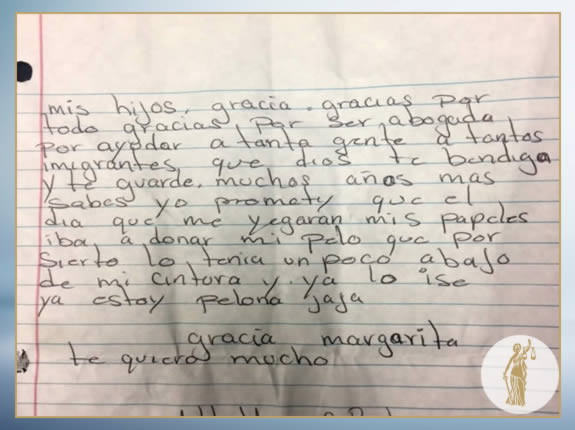 mis hijos, gracia. gracias por
todo gracias por ser abogada
por ayudar a tanta gente a tantos
imigrantes, que dios te bendiga
y te guarde, muchos años mas
sabes yo promety que el
dia que me yegaran mis papeles
iba a donar mi pelo que por
sierto lo tenia un poco abajo
de mi cintura y ya lo ise
ya estoy pelona jaja
gracia margarita
te quiero mucho